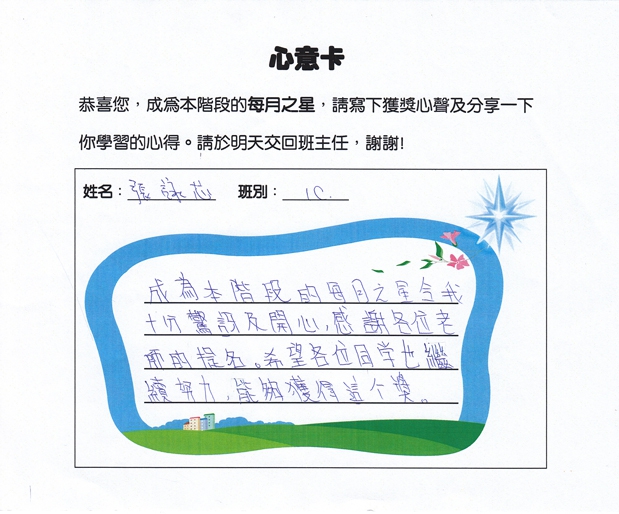 心意卡
恭喜您，成為本階段的每月之星，請寫下獲獎心聲及分享一下
你學習的心得。請於明天交回班主任，謝謝!
姓名：張詠芯 班別：1C.
成為本階段的每月之星令我
十分驚訝及開心,感謝各位老
师的提名。希望各位同学也繼
續努力,能夠獲得這个獎。